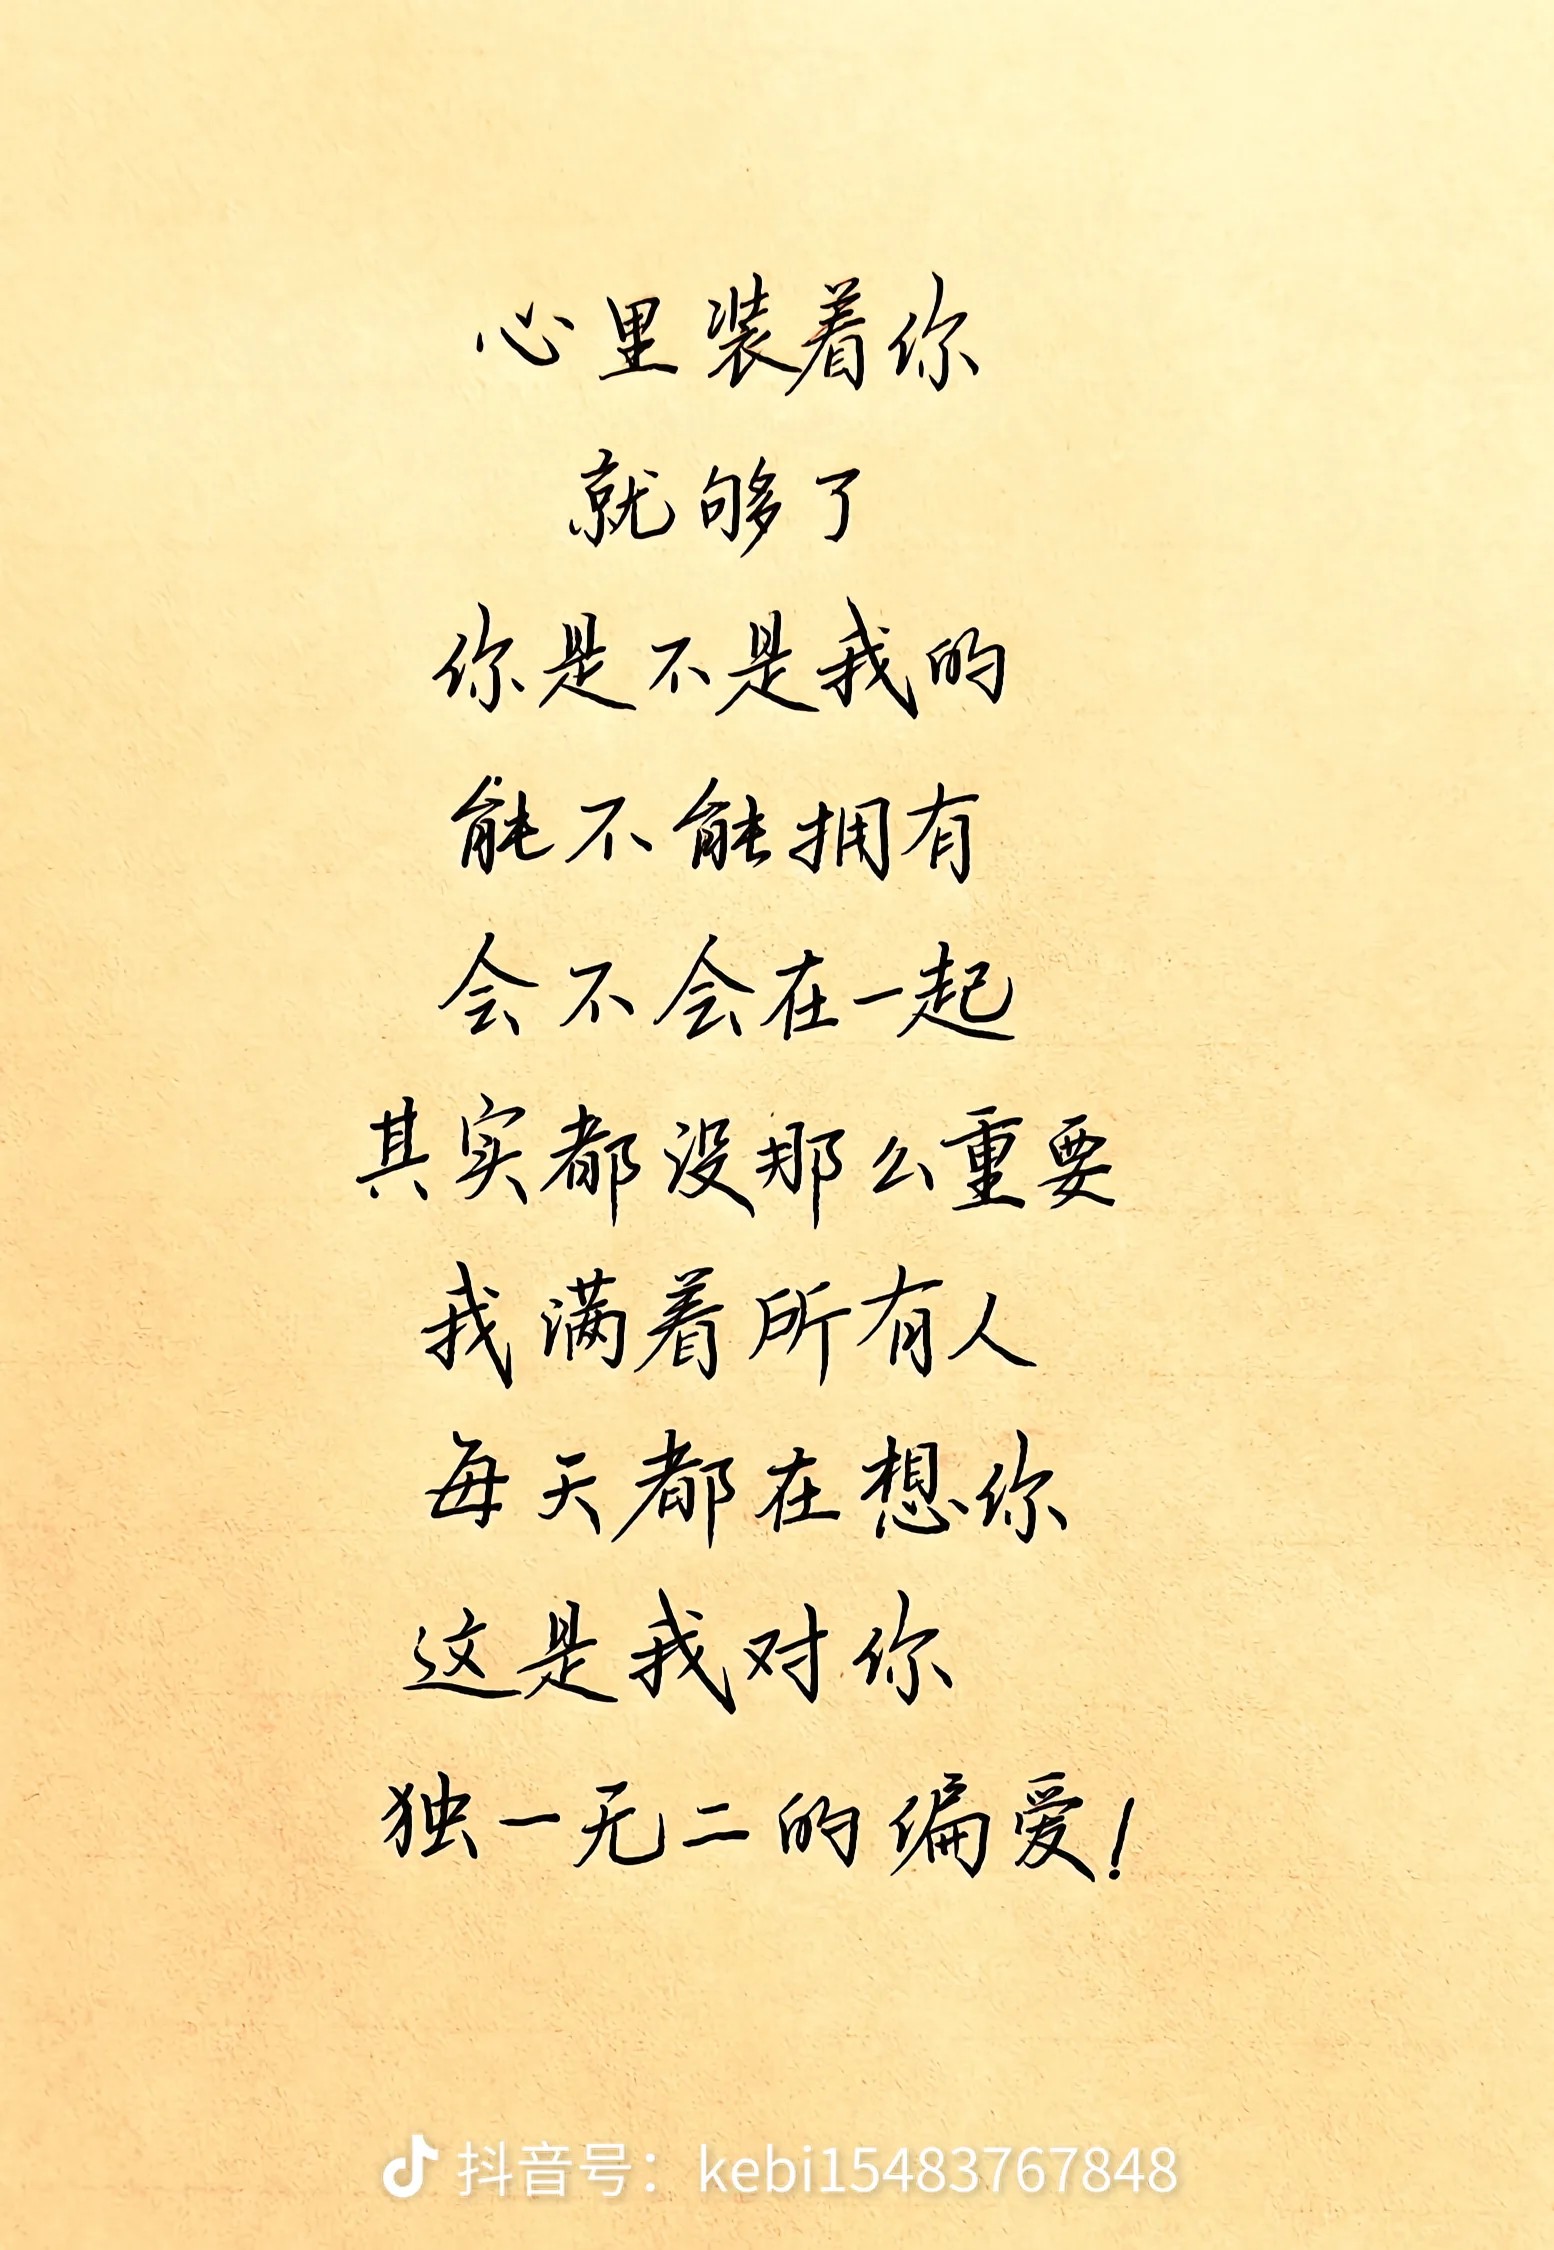 心里装着你
就够了
你是不是我的
能不能拥有
会不会在一起
其实都没那么重要
我满着所有人
每天都在想你
这是我对你
独一无二的偏爱!
抖音号: kebi15483767848